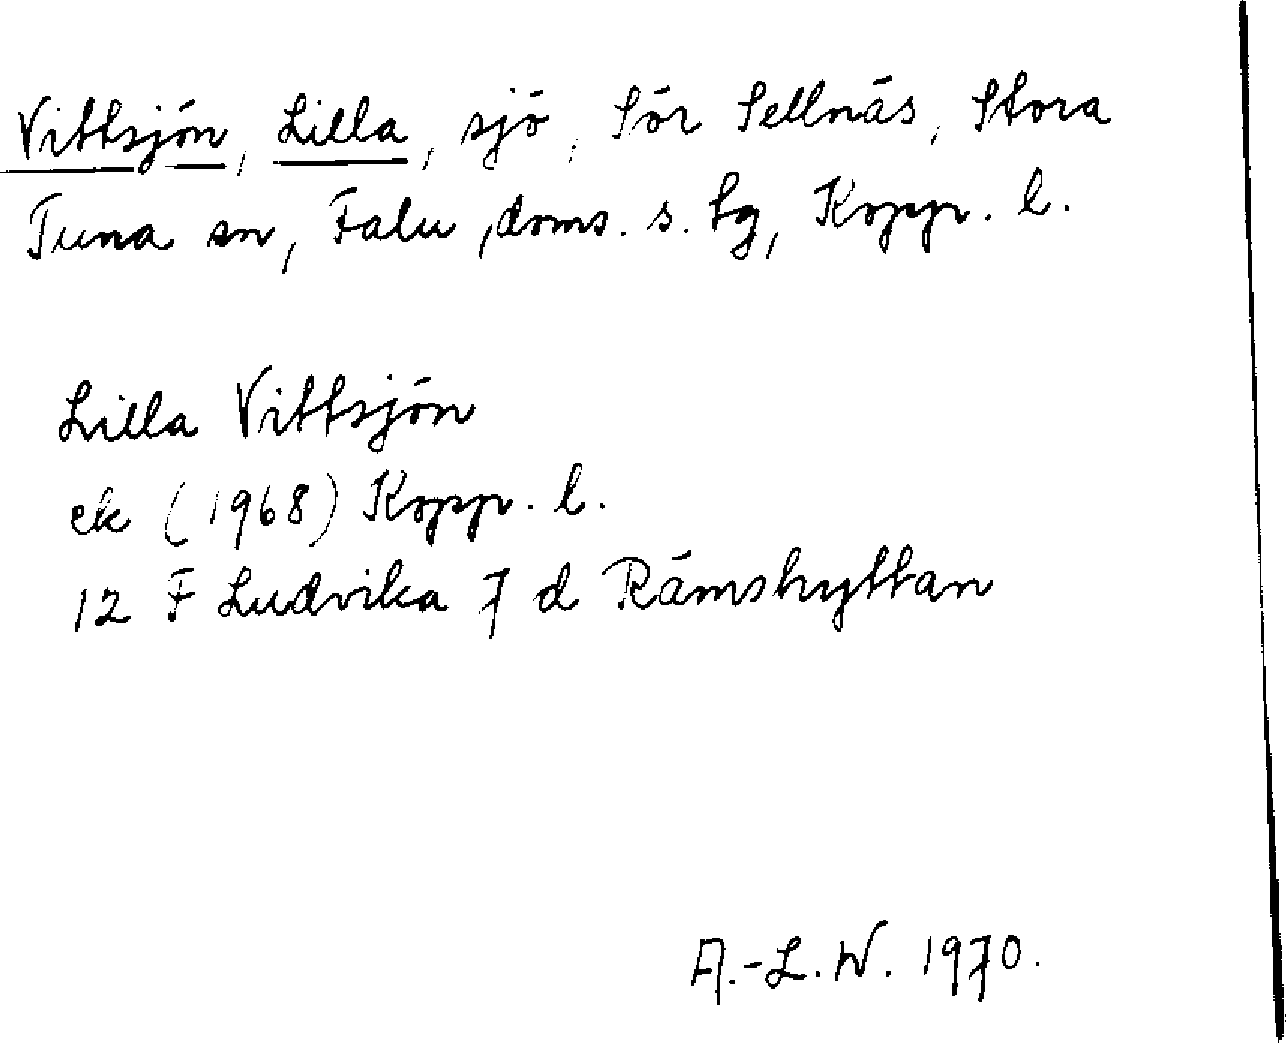 Vittsjön, Lilla, sjö, Sör Sellnäs, Stora
Tuna sn, Falu, doms. s. tg, Kopp. l.
Lilla Vittsjön
ek (1968) Kopp. l.
12 F Ludvika 7 d Rämshyttan
A.-L. W. 1970.